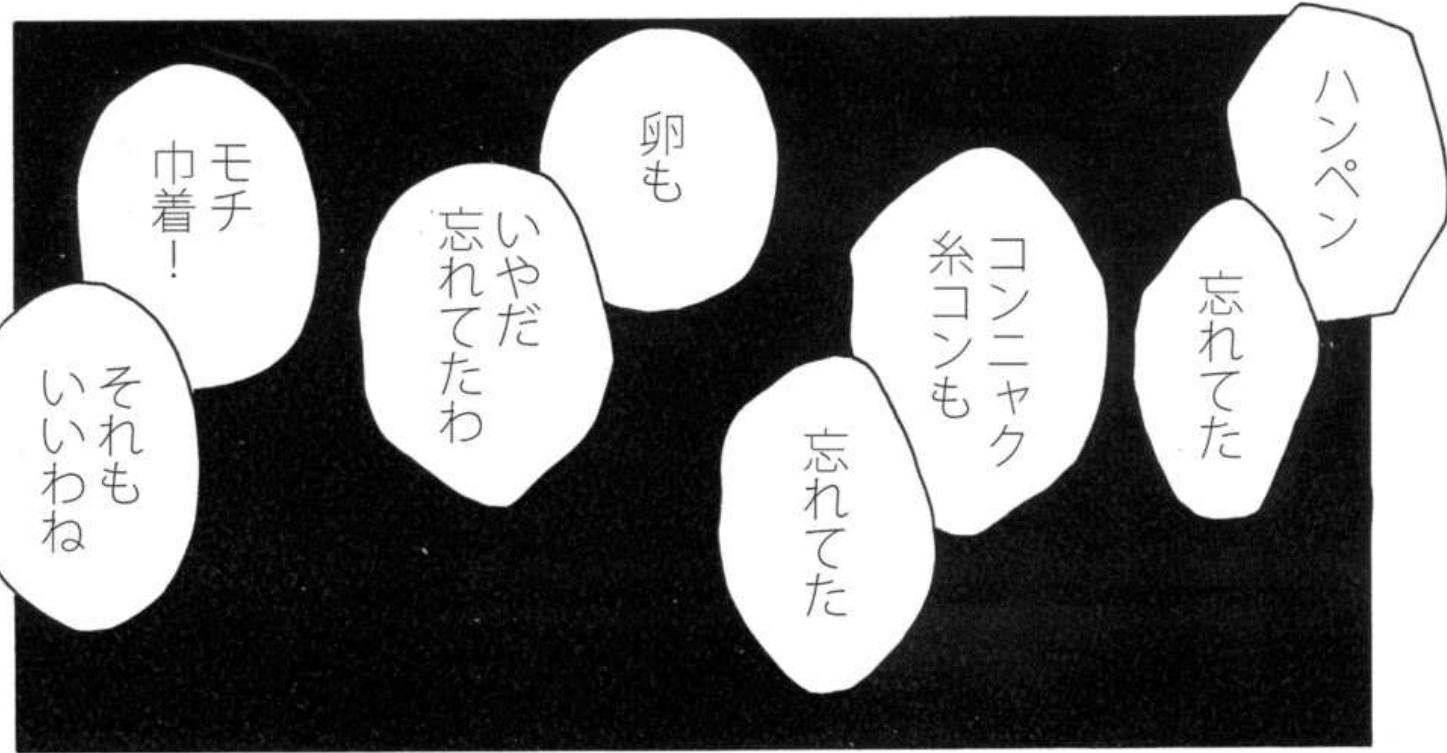 ハンペン
忘れてた
コンニャク
糸コンも
忘れてた
卵も
いやだ
忘れてたわ
モチ
巾着！
それも
いいわね